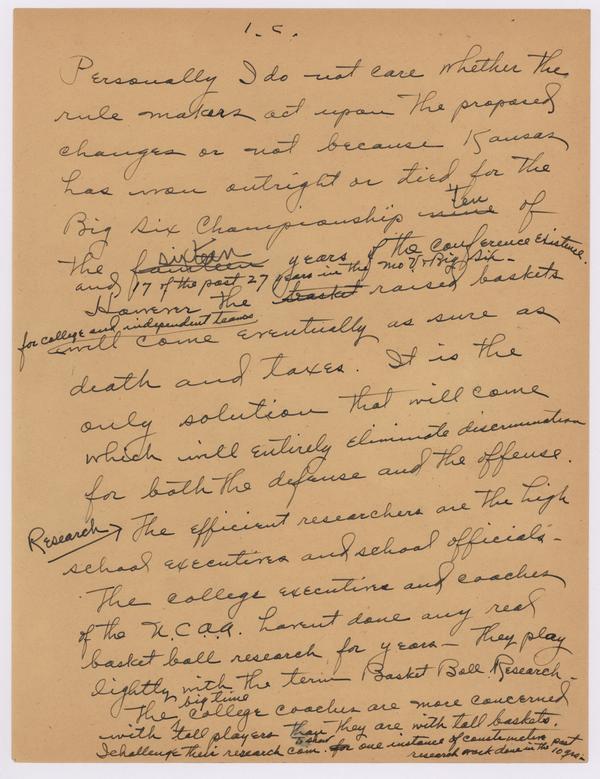 1.c.
Personally I do not care whether the
rule makers act upon the proposed
changes or not because Kansas
has won outright or tied for the
ten
Big Six Championship nine of
sixteen
the fourteen years of the conference existence.
and 17 of the past 27 years in the Mo V & Big Six -
However the basket raised baskets
for college and independent teams
will come eventually as sure as
death and taxes. It is the
only solution that will come
which will entirely eliminate discrimination
for both the defense and the offense.
Research → The efficient researchers are the high
school executives and school officials -
The college executives and coaches
of the N.C.A.A. havent done any real
basket ball research for years - They play
lightly with the term Basket Ball Research -
big time
The college coaches are more concerned
with tall players than they are with tall baskets.
to show
I challenge their research com. for one instance of constructive
research work done in the past 10 yrs -